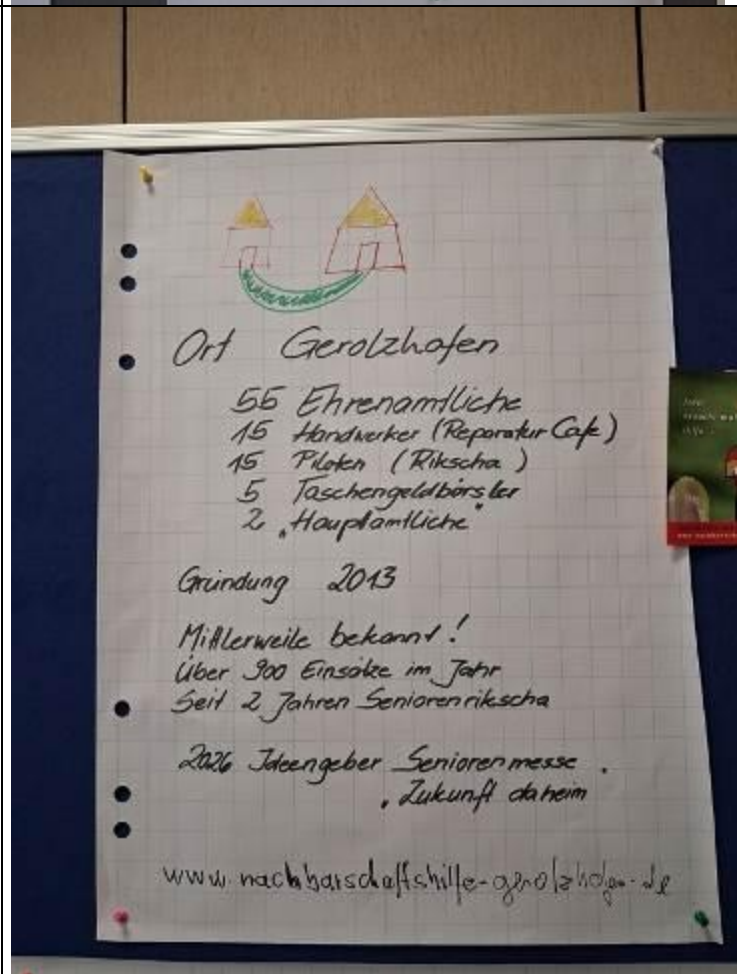 Ort Gerolzhofen
55 Ehrenamtliche
15 Handwerker (Reparatur Cafe)
15 Piloten (Rikscha)
5 Taschengeldbörsler
2 „Hauptamtliche“
Gründung 2013
Mittlerweile bekannt!
Über 900 Einsätze im Jahr
Seit 2 Jahren Seniorenrikscha
2026 Ideengeber Seniorenmesse
„Zukunft daheim
www.nachbarschaftshilfe-gerolzhofen.de